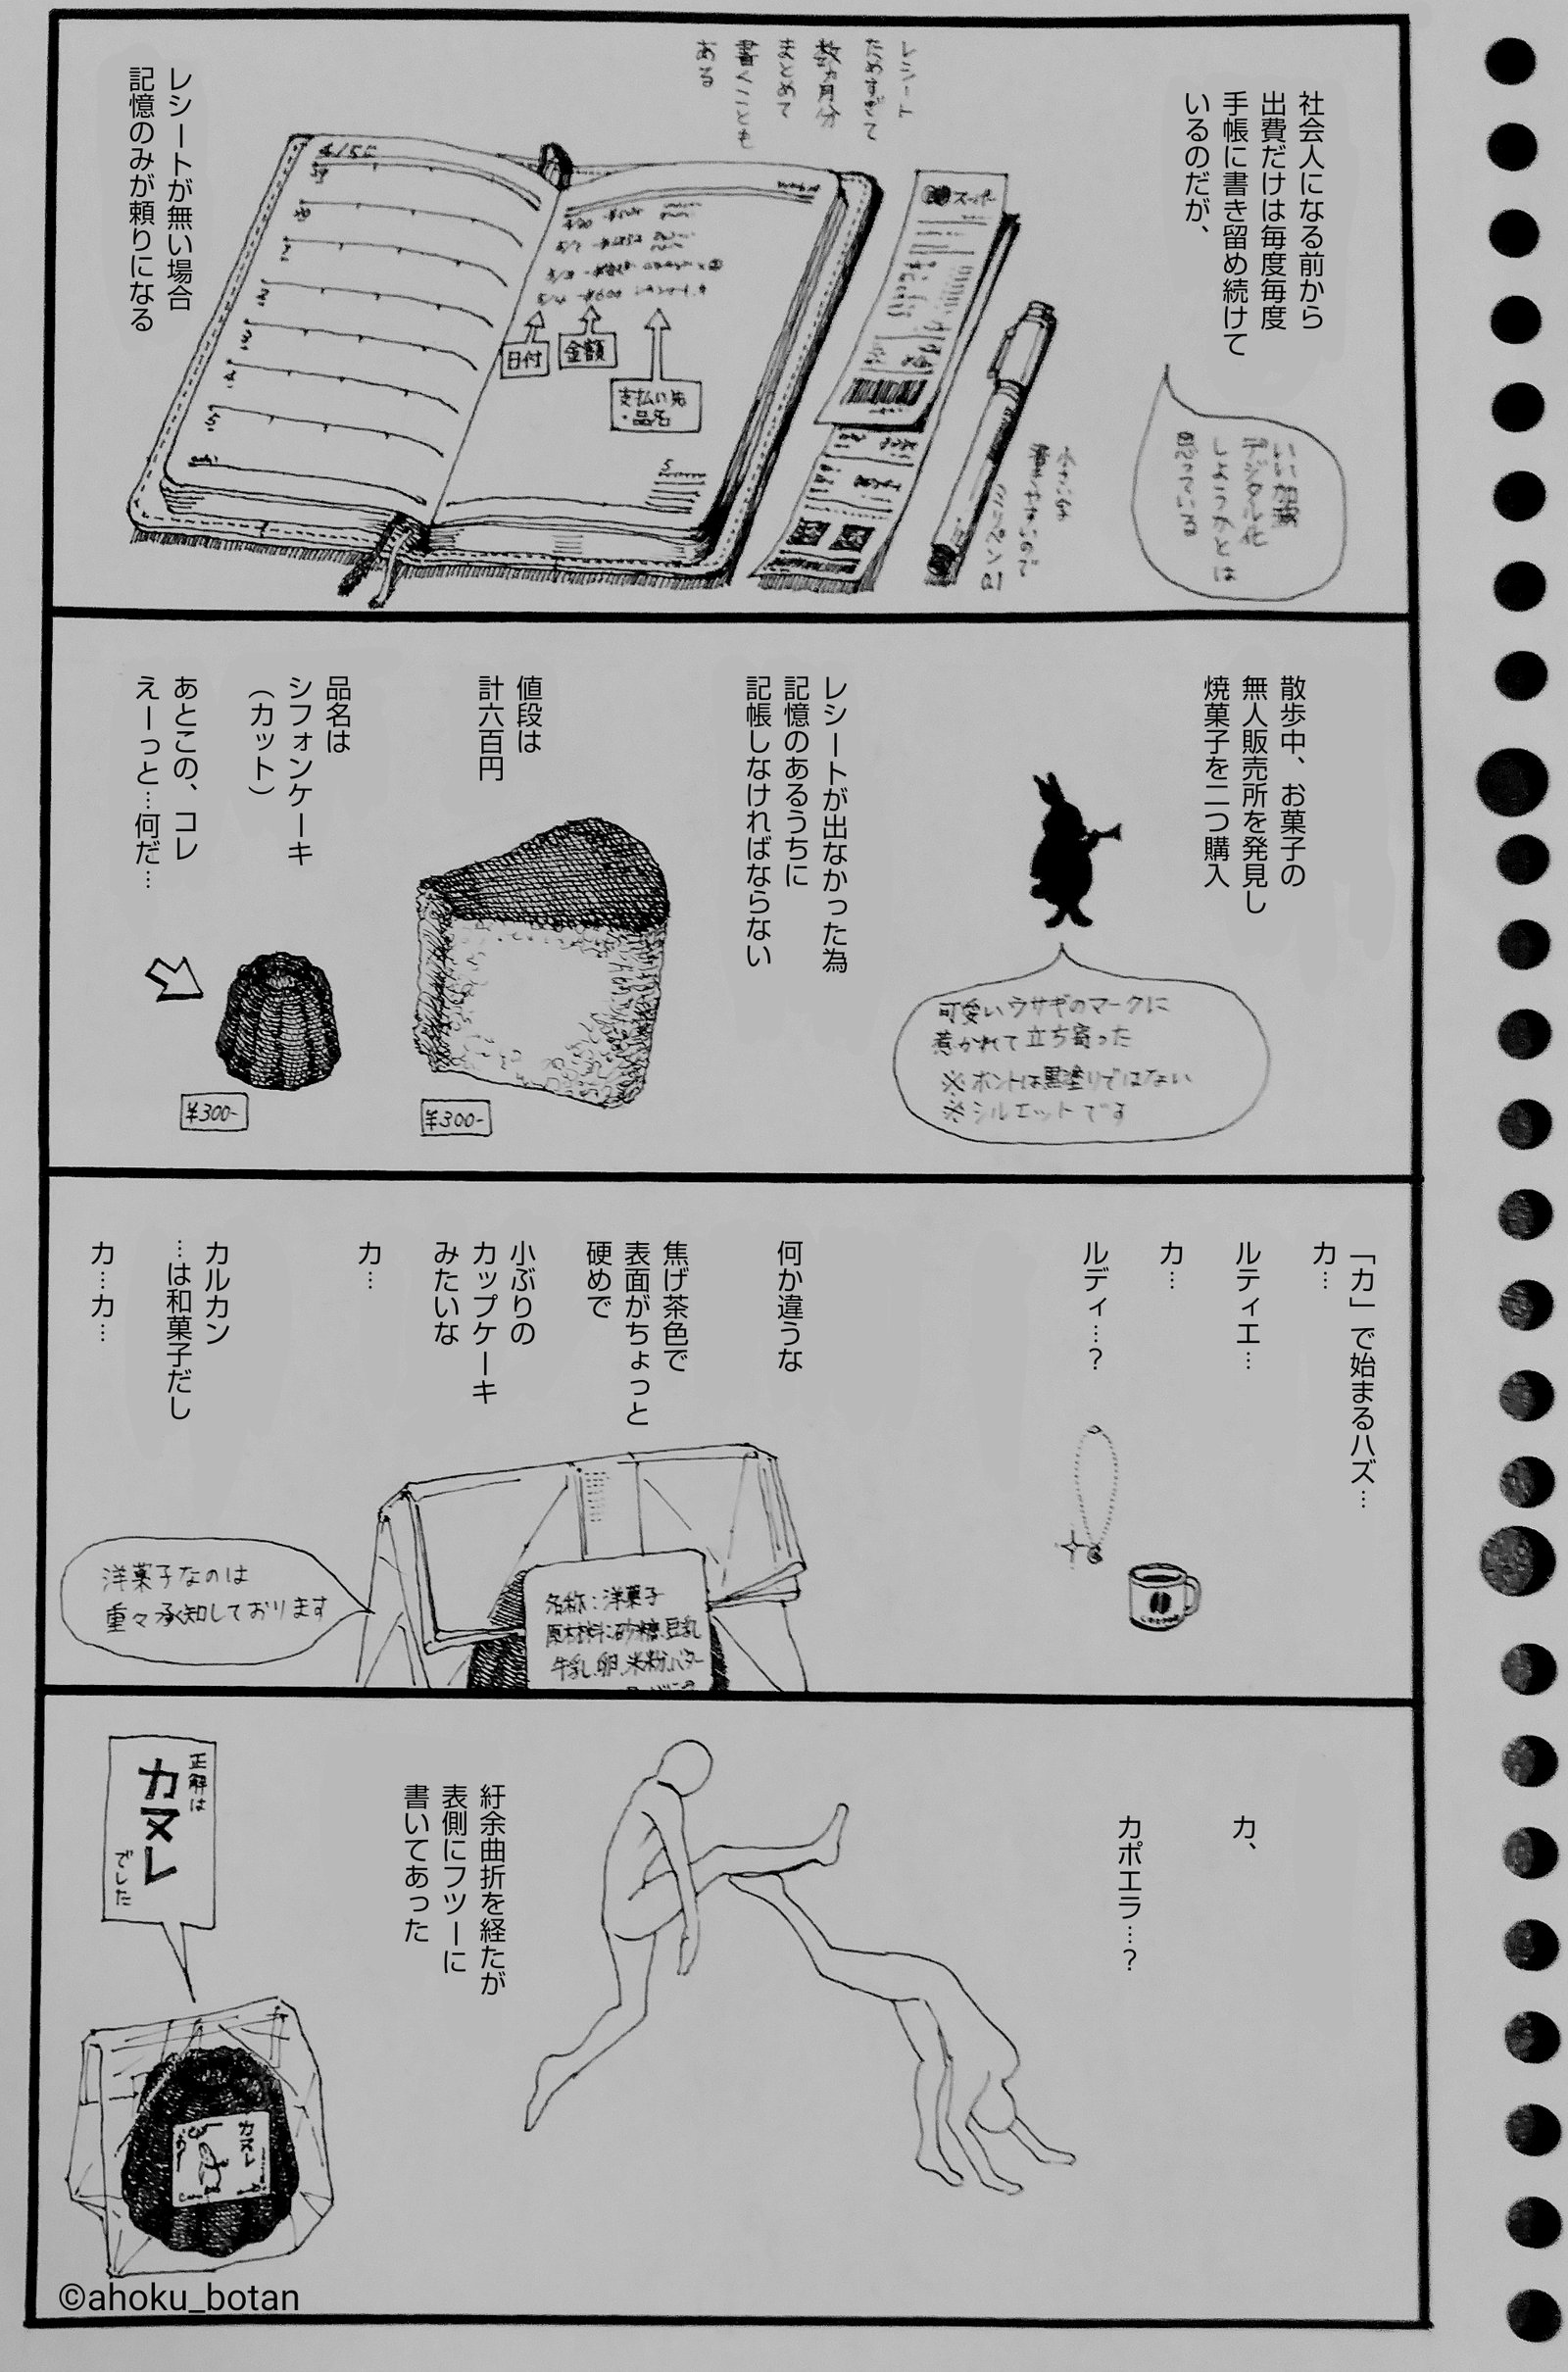 社会人になる前から
出費だけは毎度毎度
手帳に書き留め続けて
いるのだが、
いい加減
デジタル化
しようかとは
思っている
レシート
ためすぎて
数ヵ月分
まとめて
書くことも
ある
スーパー
小さい字
ミリペン 0.1
日付
金額
支払い先
・品名
レシートが無い場合
記憶のみが頼りになる
散歩中、お菓子の
無人販売所を発見し
焼菓子を二つ購入
可愛いウサギのマークに
惹かれて立ち寄った
※ホントは黒塗りではない
※シルエットです
レシートが出なかった為
記憶のあるうちに
記帳しなければならない
値段は
計六百円
¥300-
品名は
シフォンケーキ
（カット）
あとこの、コレ
えーっと…何だ…
¥300-
「カ」で始まるハズ…
カ…
ルティエ…
カ…
ルディ…？
何か違うな
焦げ茶色で
表面がちょっと
硬めで
小ぶりの
カップケーキ
みたいな
カ…
カルカン
…は和菓子だし
カ…カ…
名称：洋菓子
原材料：砂糖、豆乳
牛乳、卵、米粉、バター
洋菓子なのは
重々承知しております
カ、
カポエラ…？
紆余曲折を経たが
表側にフツーに
書いてあった
正解は
カヌレ
でした
カヌレ
©ahoku_botan